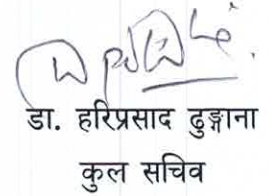 डा. हरिप्रसाद ढुङ्गाना
कुल सचिव